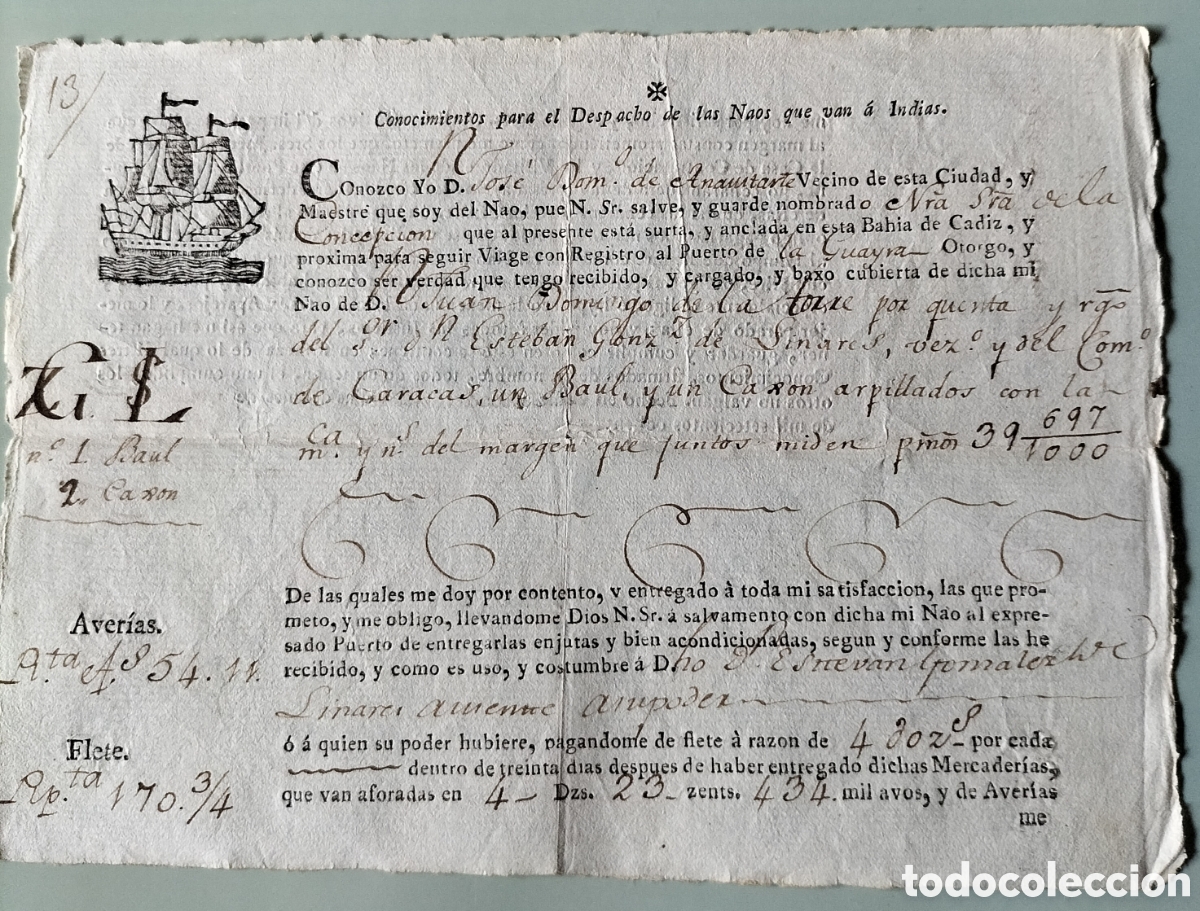 13/
Conocimientos para el Despacho de las Naos que van á Indias.
Conozco Yo D. José Dom.º de Vecino de esta Ciudad, y
Maestre que soy del Nao, que N. Sr. salve, y guarde nombrado Nrã Srã de la
Concepcion que al presente está surta, y anclada en esta Bahia de Cadiz, y
proxima para seguir Viage con Registro al Puerto de la Guayra Otorgo, y
conozco ser verdad que tengo recibido, y cargado, y baxo cubierta de dicha mi
Nao de D. Juan Domingo de la torre por quenta y rgõ
del Sr. Dn Esteban Gonz.z de Linares, vez.º y del Com.º
de Caracas, un Baul, y un Caxon arpillados con la
m.ca y n.s del margen que juntos miden pmõs 39 697/1000
n.º 1. Baul
2. Caxon
De las quales me doy por contento, y entregado à toda mi satisfaccion, las que pro-
meto, y me obligo, llevandome Dios N. Sr. á salvamento con dicha mi Nao al expre-
sado Puerto de entregarlas enjutas y bien acondicionadas, segun y conforme las he
recibido, y como es uso, y costumbre á D.ho S. Estevan Gonzalez de
Linares ausente asupoder
ó á quien su poder hubiere, pagandome de flete à razon de 4 por cada
dentro de treinta dias despues de haber entregado dichas Mercaderías,
que van aforadas en 4 Dzs. 23 zents. 434 mil avos, y de Averías
me
Averías.
54. 11.
Flete.
170. 3/4
todocoleccion